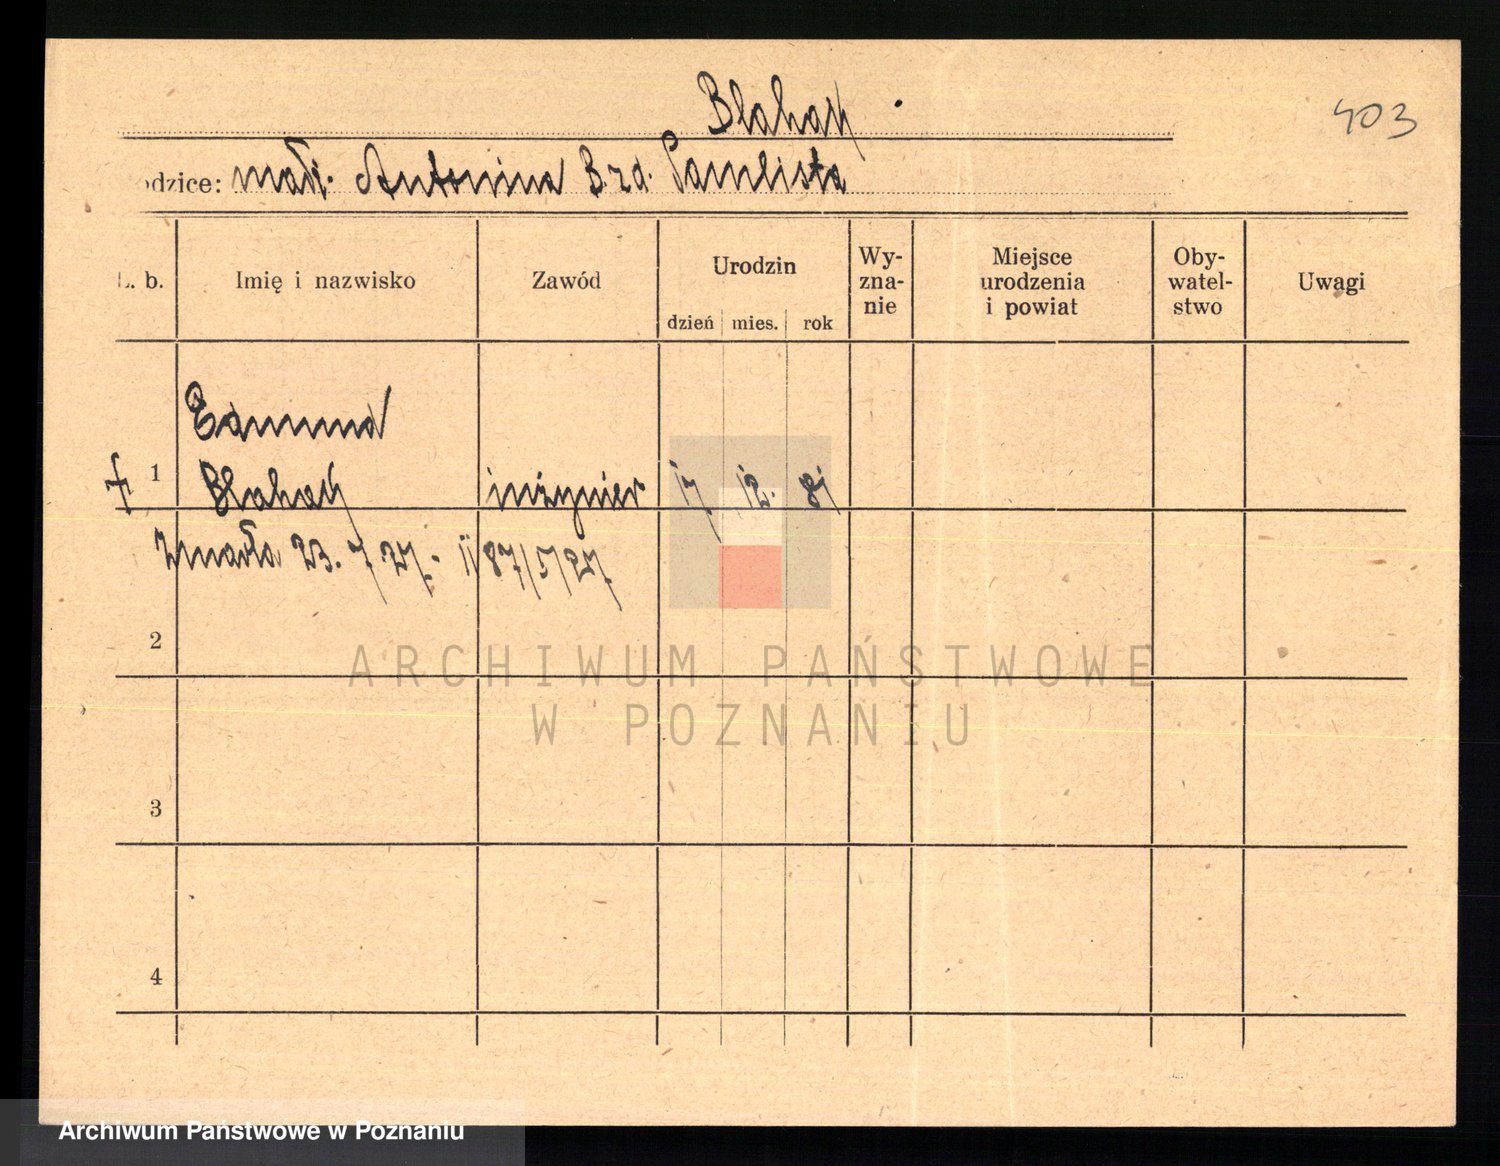 Blahak
403
odzice: małż. Antonina B. zd. Pawlista
L. b.
Imię i nazwisko
Zawód
Urodzin
dzień mies. rok
Wy-
zna-
nie
Miejsce
urodzenia
i powiat
Oby-
watel-
stwo
Uwagi
Edmund
1 Blahak inżynier 17. 12. 87
Zmarła 23. 7. 27. 1187/5/27
2
ARCHIWUM PAŃSTWOWE
W POZNANIU
3
4
Archiwum Państwowe w Poznaniu